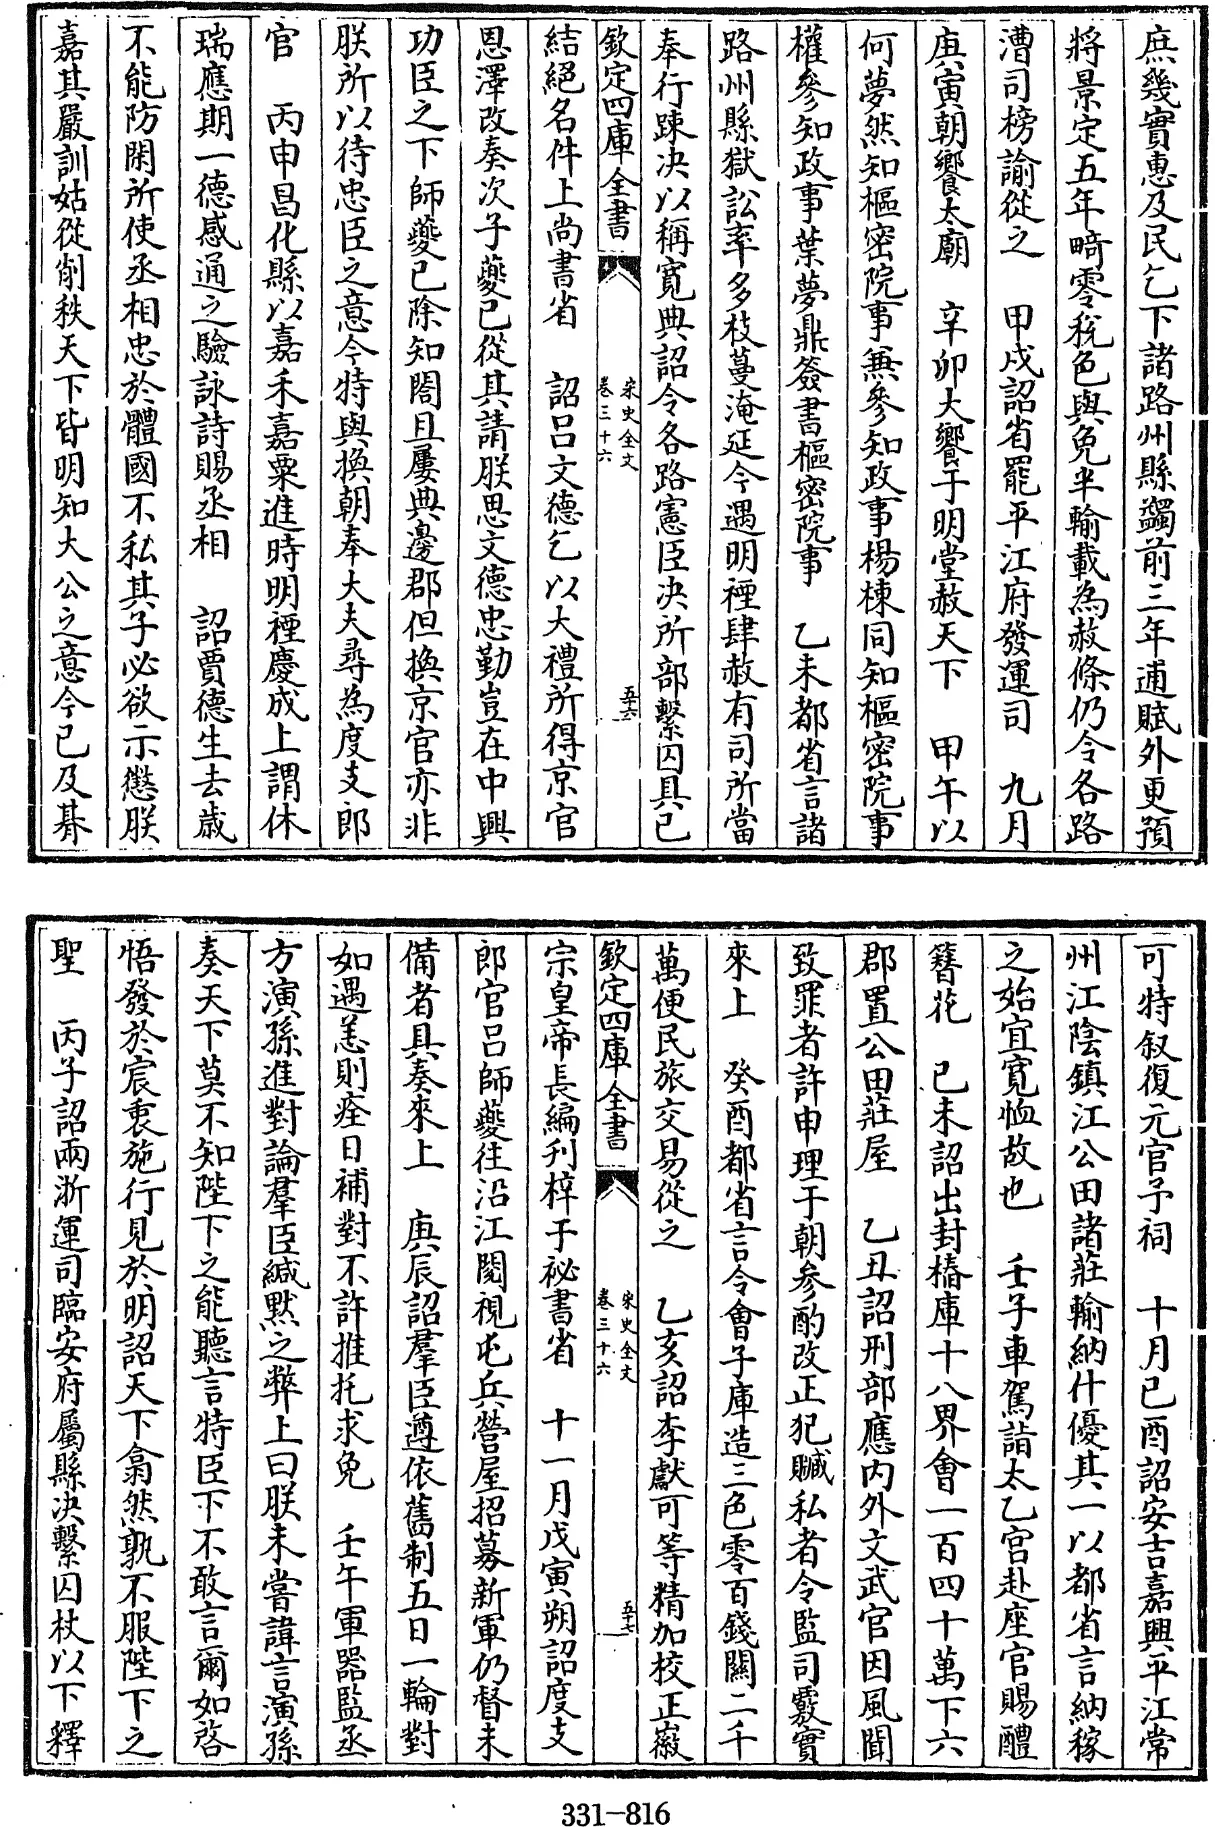 庶幾實惠及民乞下諸路州縣蠲前三年逋賦外更預
將景定五年畸零稅色與免半輸載為赦條仍令各路
漕司榜諭從之　甲戌詔省罷平江府發運司　九月
庚寅朝饗太廟　辛卯大饗于明堂赦天下　甲午以
何夢然知樞密院事兼參知政事楊棟同知樞密院事
權參知政事葉夢鼎簽書樞密院事　乙未都省言諸
路州縣獄訟率多枝蔓淹延今遇明禋肆赦有司所當
奉行踈决以稱寬典詔令各路憲臣决所部繫囚具已
欽定四庫全書
宋史全文
卷三十六
五十六
結絕名件上尚書省　詔呂文德乞以大禮所得京官
恩澤改奏次子夔已從其請朕思文德忠勤豈在中興
功臣之下師夔已除知閤且屢典邊郡但換京官亦非
朕所以待忠臣之意今特與換朝奉大夫尋為度支郎
官　丙申昌化縣以嘉禾嘉粟進時明禋慶成上謂休
瑞應期一德感通之驗詠詩賜丞相　詔賈德生去歲
不能防閑所使丞相忠於體國不私其子必欲示懲朕
嘉其嚴訓姑從削秩天下皆明知大公之意今已及朞
可特叙復元官予祠　十月己酉詔安吉嘉興平江常
州江陰鎮江公田諸莊輸納什優其一以都省言納稼
之始宜寬恤故也　壬子車駕詣太乙宮赴座官賜醴
簪花　己未詔出封樁庫十八界會一百四十萬下六
郡置公田莊屋　乙丑詔刑部應内外文武官因風聞
致罪者許申理于朝參酌改正犯贓私者令監司覈實
來上　癸酉都省言令會子庫造三色零百錢關二千
萬便民旅交易從之　乙亥詔李獻可等精加校正徽
欽定四庫全書
宋史全文
卷三十六
五十七
宗皇帝長編刋梓于秘書省　十一月戊寅朔詔度支
郎官呂師夔往沿江閱視屯兵營屋招募新軍仍督未
備者具奏來上　庚辰詔羣臣遵依舊制五日一輪對
如遇恙則痊日補對不許推托求免　壬午軍器監丞
方演孫進對論羣臣緘默之弊上曰朕未嘗諱言演孫
奏天下莫不知陛下之能聽言特臣下不敢言爾如啓
悟發於宸衷施行見於明詔天下翕然孰不服陛下之
聖　丙子詔兩浙運司臨安府屬縣决繫囚杖以下釋
331-816